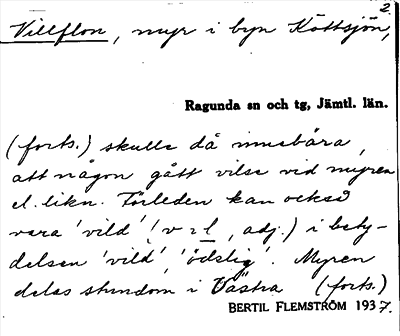 2.
Villflon, myr i byn Köttsjön,
Ragunda sn och tg, Jämtl. län.
(forts.) skulle då innebära,
att någon gått vilse vid myren
el. likn. Förleden kan också
vara 'vild' (v , adj.) i bety-
delsen 'vild', 'ödslig'. Myren
delas stundom i Västra (forts.)
BERTIL FLEMSTRÖM 1937.